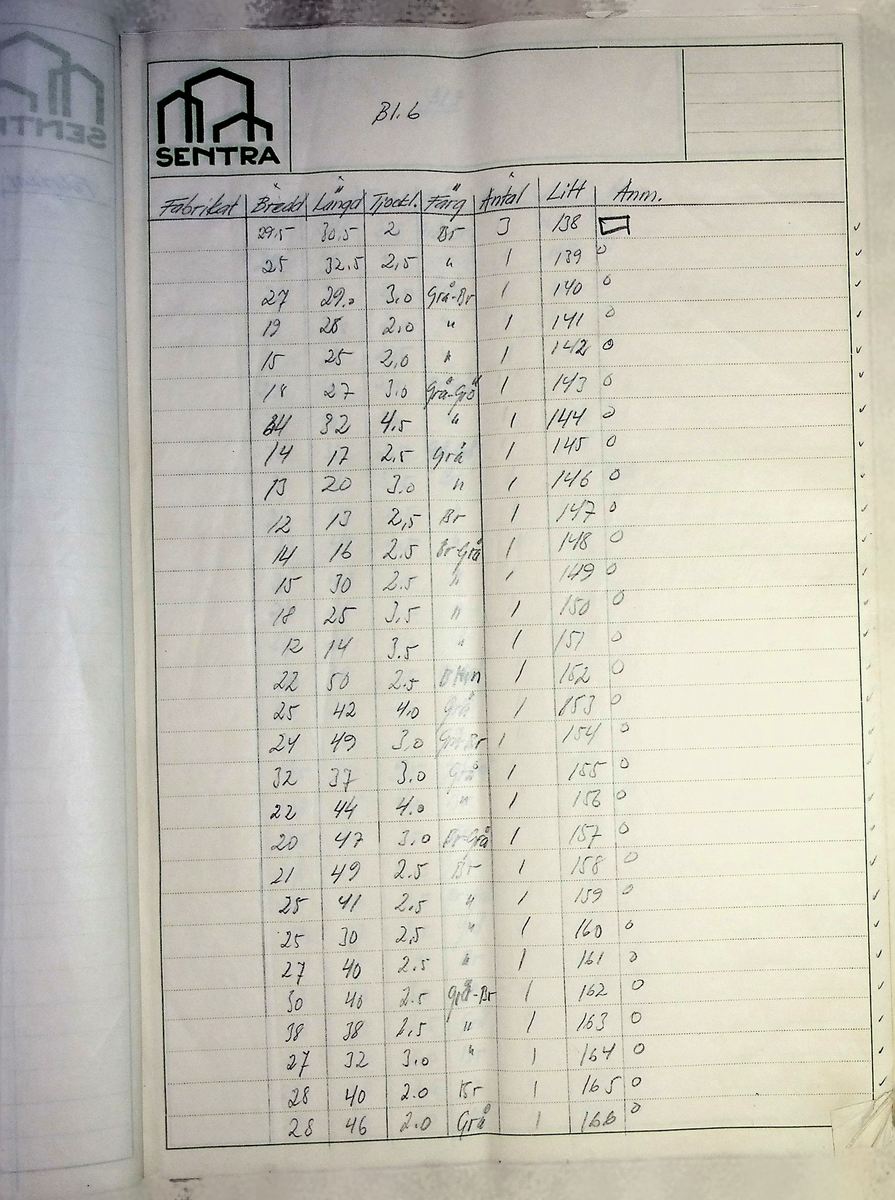 SENTRA
Bl. 6
Fabrikat Bredd Längd Tjockl. Färg Antal Litt Anm.
29,5 30,5 2 Br 3 138
25 32.5 2,5 " 1 139 o
27 29.0 3.0 Grå-Br 1 140 o
19 28 2,0 " 1 141 o
15 25 2,0 " 1 142 o
18 27 3.0 Grå-Grö 1 143 o
34 32 4.5 " 1 144 o
14 17 2.5 Grå 1 145 o
13 20 3.0 " 1 146 o
12 13 2,5 Br 1 147 o
14 16 2.5 Br-Grå 1 148 o
15 30 2.5 " 1 149 o
18 25 3,5 " 1 150 o
12 14 3.5 " 1 151 o
22 50 2.5 1 152 o
25 42 4.0 Grå 1 153 o
24 49 3,0 Grå-Br 1 154 o
32 37 3.0 Grå 1 155 o
22 44 4.0 " 1 156 o
20 47 3.0 Br-Grå 1 157 o
21 49 2.5 Br 1 158 o
25 41 2.5 " 1 159 o
25 30 2,5 " 1 160 o
27 40 2.5 " 1 161 o
30 40 2.5 Grå-Br 1 162 o
38 38 2,5 " 1 163 o
27 32 3.0 " 1 164 o
28 40 2.0 Br 1 165 o
28 46 2.0 Grå 1 166 o